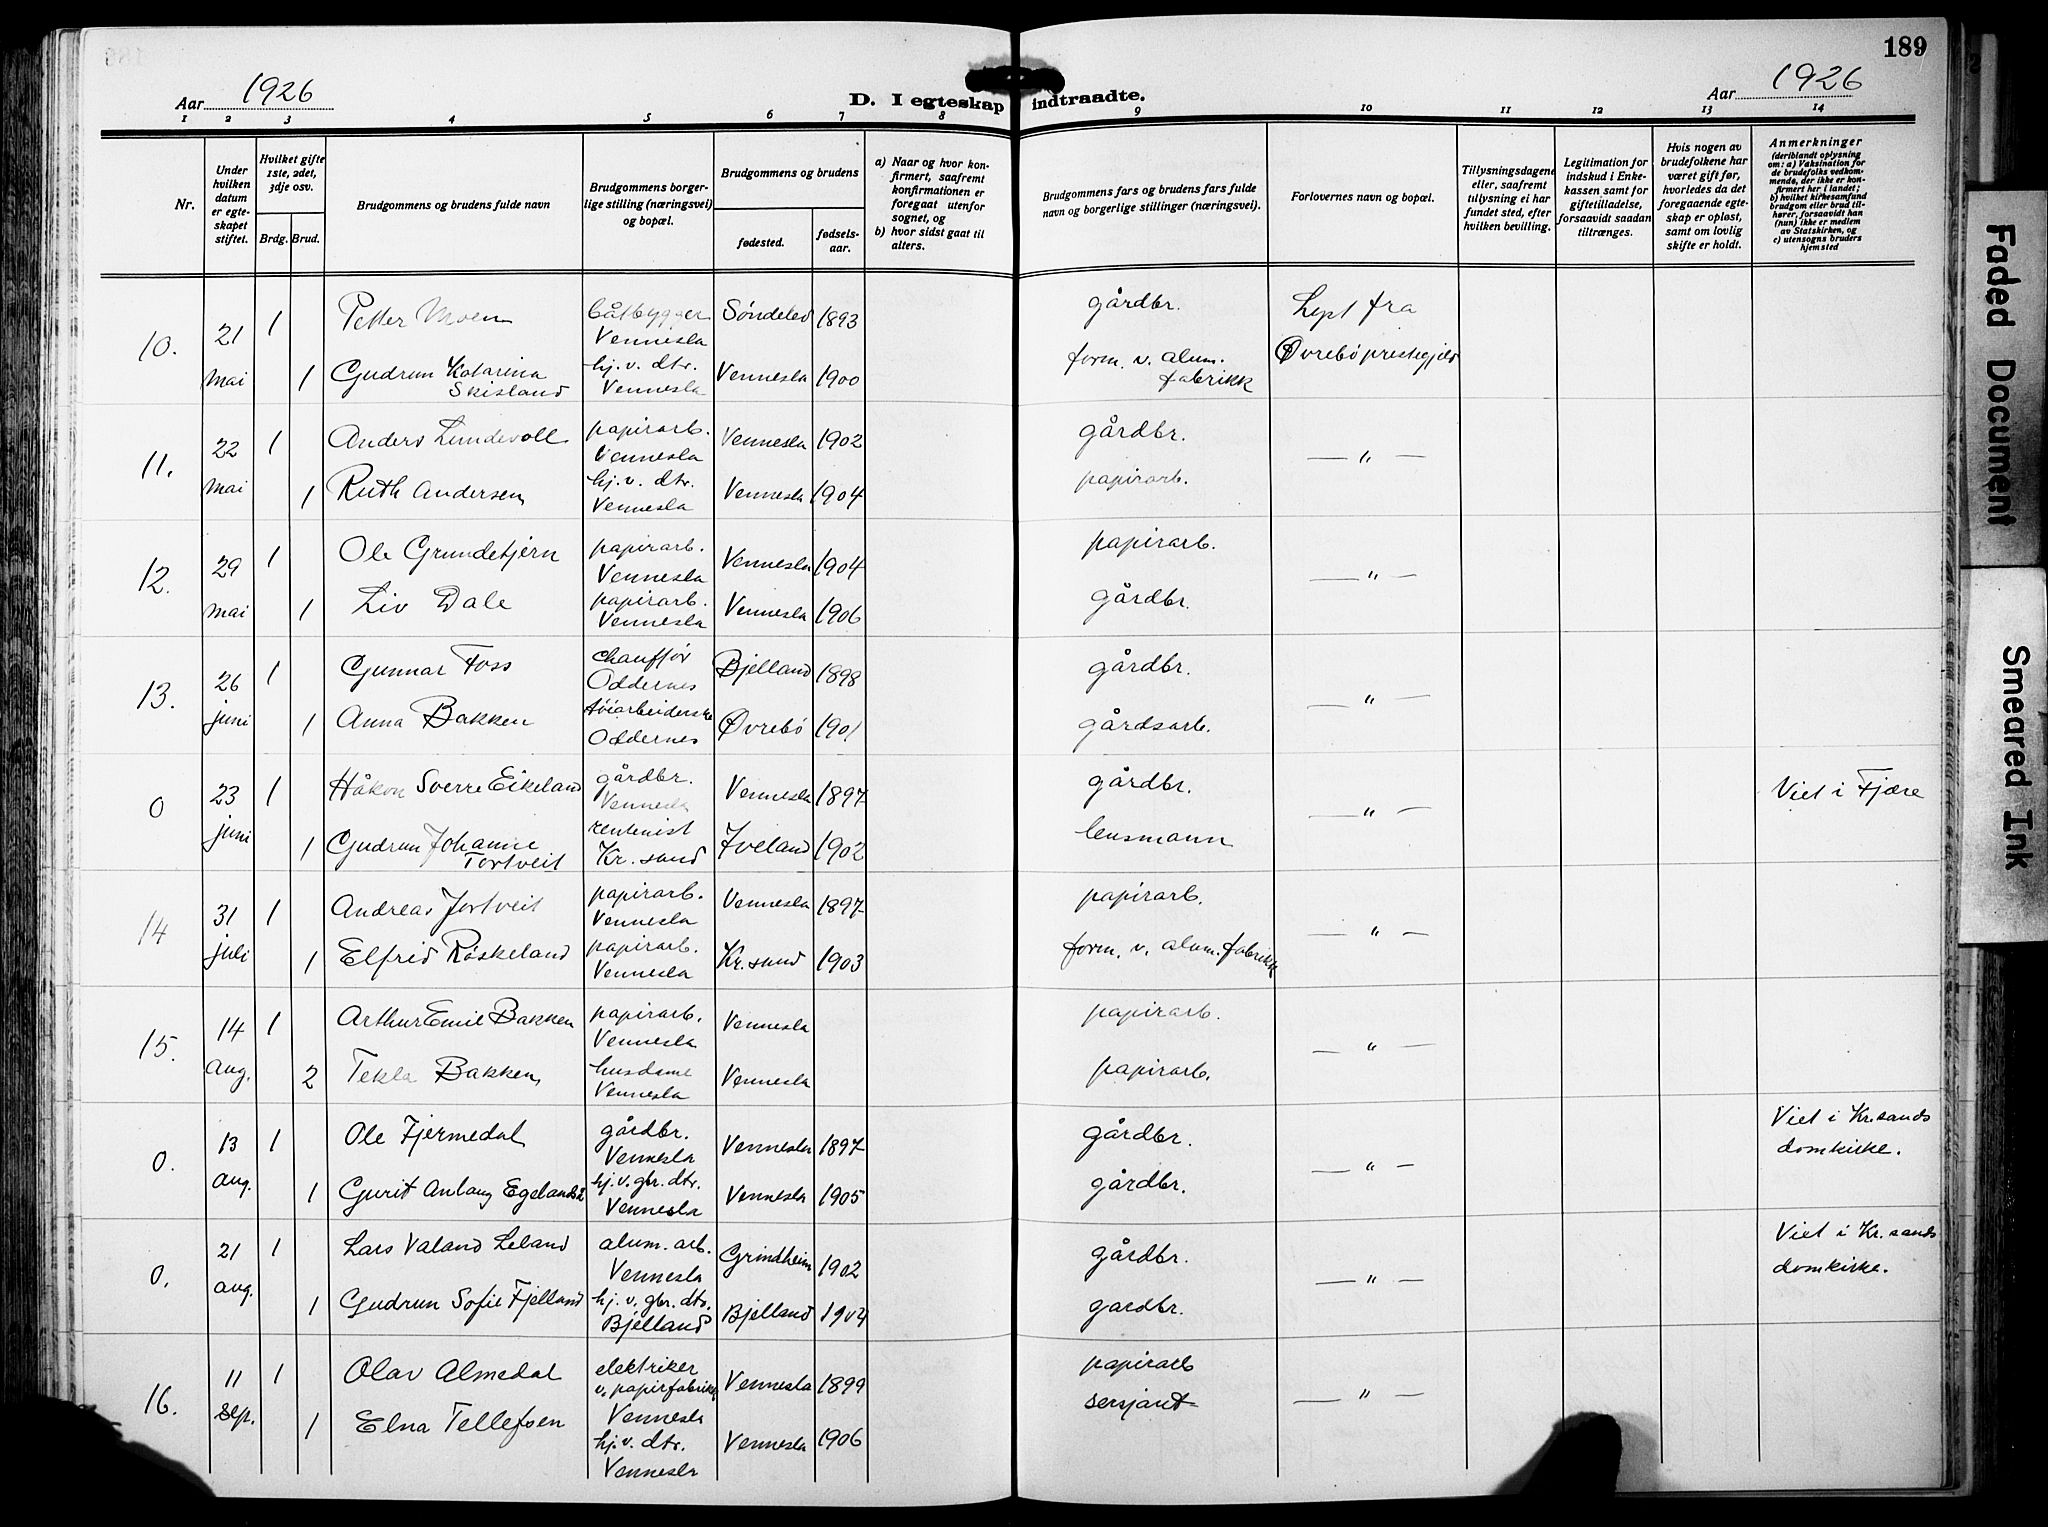 189
Aar 1926
D. I egteskap indtraadte.
Aar 1926
1 2 3 4 5 6 7 8 9 10 11 12 13 14
Nr.
Under hvilken datum er egteskapet stiftet.
Hvilket gifte 1ste, 2det, 3dje osv.
Brdg. Brud.
Brudgommens og brudens fulde navn
Brudgommens borgerlige stilling (næringsvei) og bopæl.
Brudgommens og brudens
fødested.
fødselsaar.
a) Naar og hvor konfirmert, saafremt konfirmationen er foregaat utenfor sognet, og
b) hvor sidst gaat til alters.
Brudgommens fars og brudens fars fulde navn og borgerlige stillinger (næringsvei).
Forlovernes navn og bopæl.
Tillysningsdagene eller, saafremt tillysning ei har fundet sted, efter hvilken bevilling.
Legitimation for indskud i Enkekassen samt for giftetilladelse, forsaavidt saadan tiltrænges.
Hvis nogen av brudefolkene har været gift før, hvorledes da det foregaaende egteskap er opløst, samt om lovlig skifte er holdt.
Anmerkninger
(deriblandt oplysning om: a) Vaksination for de brudefolks vedkommende, der ikke er konfirmert her i landet; b) hvilket kirkesamfund brudgom eller brud tilhører, forsaavidt han (hun) ikke er medlem av Statskirken, og c) utensogns bruders hjemsted
10. 21 mai 1 Petter Moen båtbygger Vennesla Søndeled 1893 gårdbr. Lyst fra
1 Gudrun Katarina Skisland hj. v. dtr. Vennesla Vennesla 1900 form. v. alum. fabrikk Øvrebø prestegjeld
11. 22 mai 1 Anders Lundevoll papirarb. Vennesla Vennesla 1902 gårdbr. — " —
1 Ruth Andersen hj. v. dtr. Vennesla Vennesla 1904 papirarb.
12. 29 mai 1 Ole Grundetjern papirarb. Vennesla Vennesla 1904 papirarb. — " —
1 Liv Dale papirarb. Vennesla Vennesla 1906 gårdbr.
13. 26 juni 1 Gunnar Foss chauffør Oddernes Bjelland 1898 gårdbr. — " —
1 Anna Bakken tøiarbeiderske Oddernes Øvrebø 1901 gårdsarb.
0 23 juni 1 Håkon Sverre Eikeland gårdbr. Vennesla Vennesla 1897 gårdbr. — " — Viet i Fjære
1 Gudrun Johanne Tortveit rentenist Kr. sand Iveland 1902 lensmann
14 31 juli 1 Andreas Jortveit papirarb. Vennesla Vennesla 1897 papirarb. — " —
1 Elfrid Røskeland papirarb. Vennesla Kr. sand 1903 form. v. alum. fabrikk
15. 14 aug. 1 Arthur Emil Bakken papirarb. Vennesla Vennesla papirarb. — " —
2 Tekla Bakken husdame Vennesla Vennesla papirarb.
0. 13 aug. 1 Ole Fjermedal gårdbr. Vennesla Vennesla 1897 gårdbr. — " — Viet i Kr.sands domkirke.
1 Gurit Anlaug Egeland hj. v. gbr. dtr. Vennesla Vennesla 1905 gårdbr.
0. 21 aug. 1 Lars Valand Leland alum. arb. Vennesla Grindheim 1902 gårdbr. — " — Viet i Kr. sands domkirke.
1 Gudrun Sofie Fjelland hj. v. gbr. dtr. Bjelland Bjelland 1904 gardbr.
16. 11 sep. 1 Olav Almedal elektriker v. papirfabrikk Vennesla Vennesla 1899 papirarb — " —
1 Elna Tellefsen hj. v. dtr. Vennesla Vennesla 1906 sersjant
Faded Document
Smeared Ink